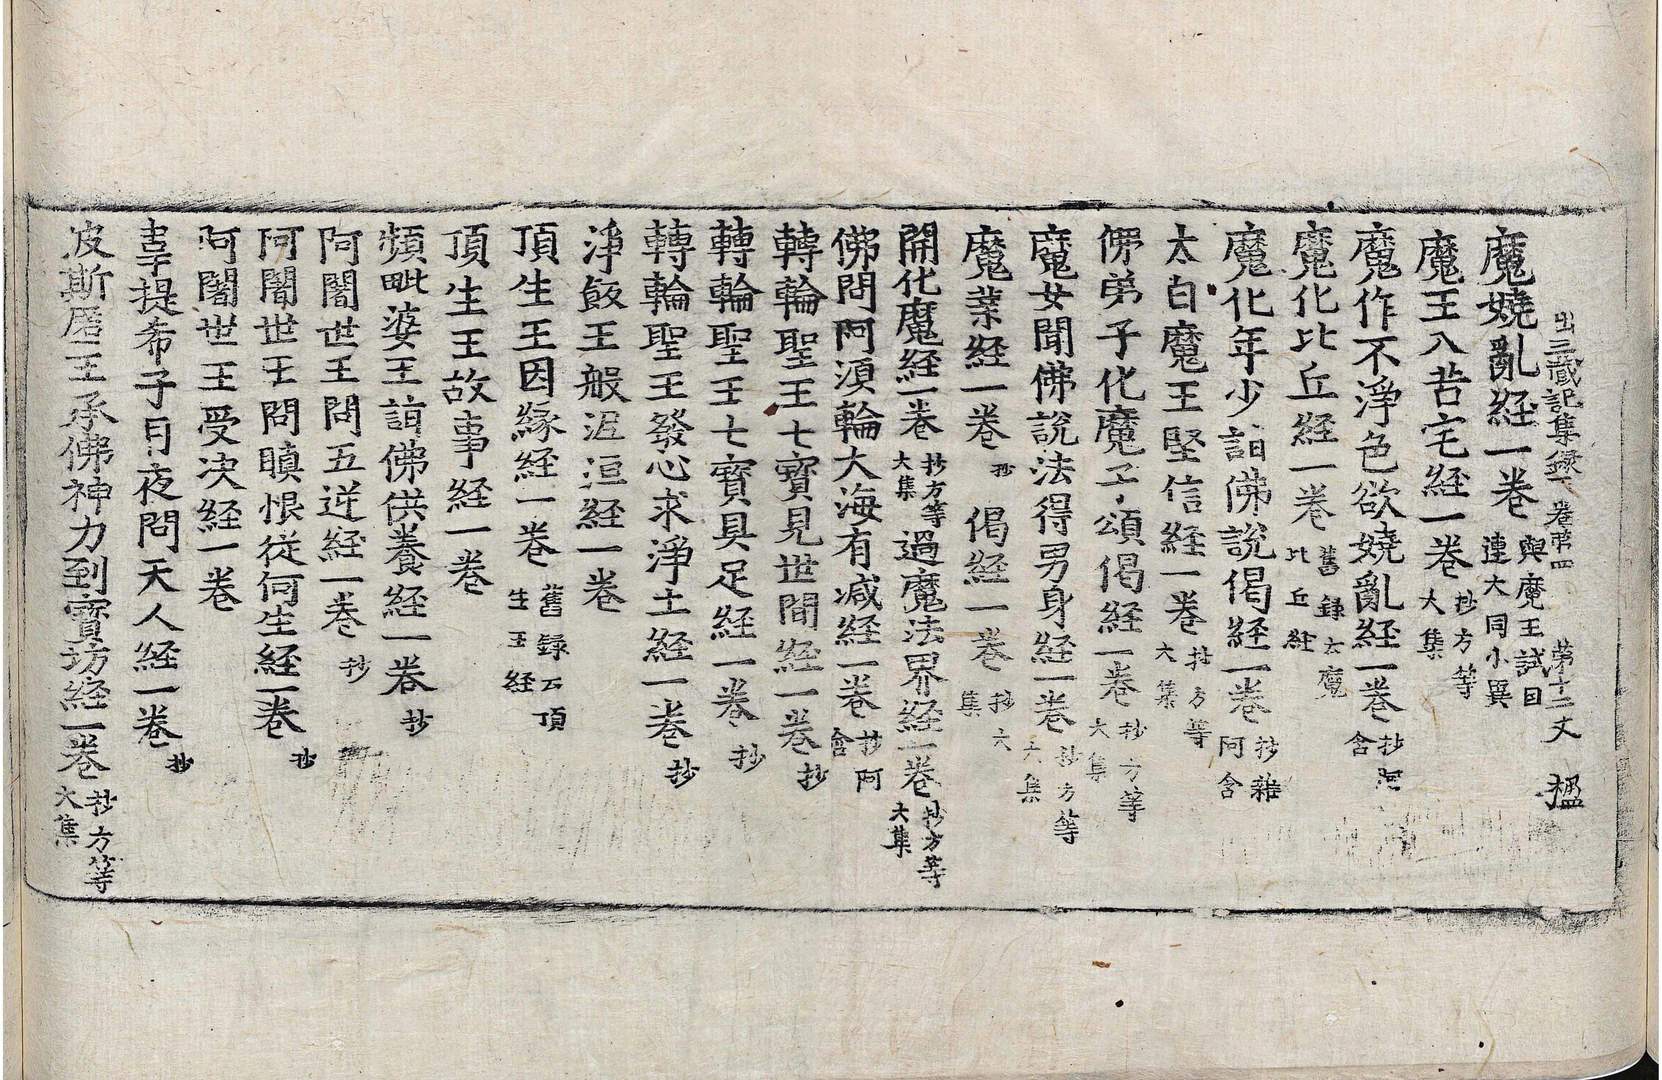 出三藏記集録下卷第四 第十三丈 楹
魔嬈亂経一卷 與魔王試目連大同小異
魔王入苦宅経一卷 抄方等大集
魔作不淨色欲嬈亂経一卷 抄阿含
魔化比丘経一卷 舊録云魔比丘経
魔化年少詣佛說偈経一卷 抄雜阿含
太白魔王堅信経一卷 抄方等大集
僗弟子化魔子頌偈経一卷 抄方等大集
魔女聞佛說法得男身経一卷 抄方等大集
魔業経一卷 抄 偈経一卷 抄大集
開化魔経一卷 抄方等大集 過魔法界経一卷 抄方等大集
佛問阿湏輪大海有减経一卷 抄阿含
轉輪聖王七寳見世間経一卷 抄
轉輪聖王七寳具足経一卷 抄
轉輪聖王發心求淨土経一卷 抄
淨飯王般泥洹経一卷
頂生王因緣経一卷 舊録云頂生王経
頂生王故事経一卷
頻毗婆王詣佛供養経一卷 抄
阿闍世王問五逆経一卷 抄
阿闍世王問瞋恨從何生経一卷 抄
阿闍世王受决経一卷
韋提希子月夜問天人経一卷 抄
波斯匿王承佛神力到寳坊経一卷 抄方等大集